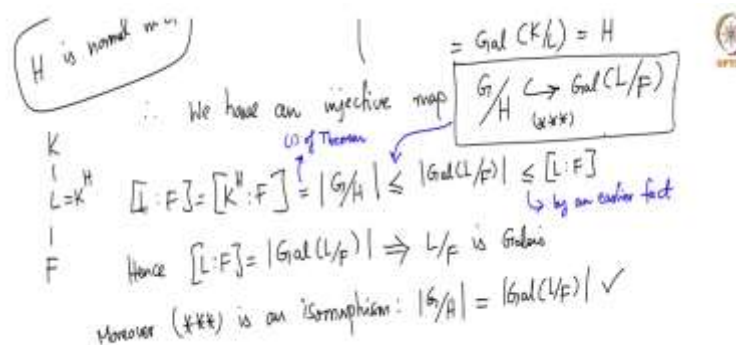 H is normal in
= Gal (K/L) = H
∴ We have an injective map G/H ↪ Gal (L/F)
(***)
(1) of Theorem
K
|
L=K^H
|
F
[L:F]=[K^H:F] = |G/H| ≤ |Gal(L/F)| ≤ [L:F]
↳ by an earlier fact
Hence [L:F]=|Gal(L/F)| ⇒ L/F is Galois
Moreover (***) is an isomorphism: |G/H| = |Gal(L/F)| ✓